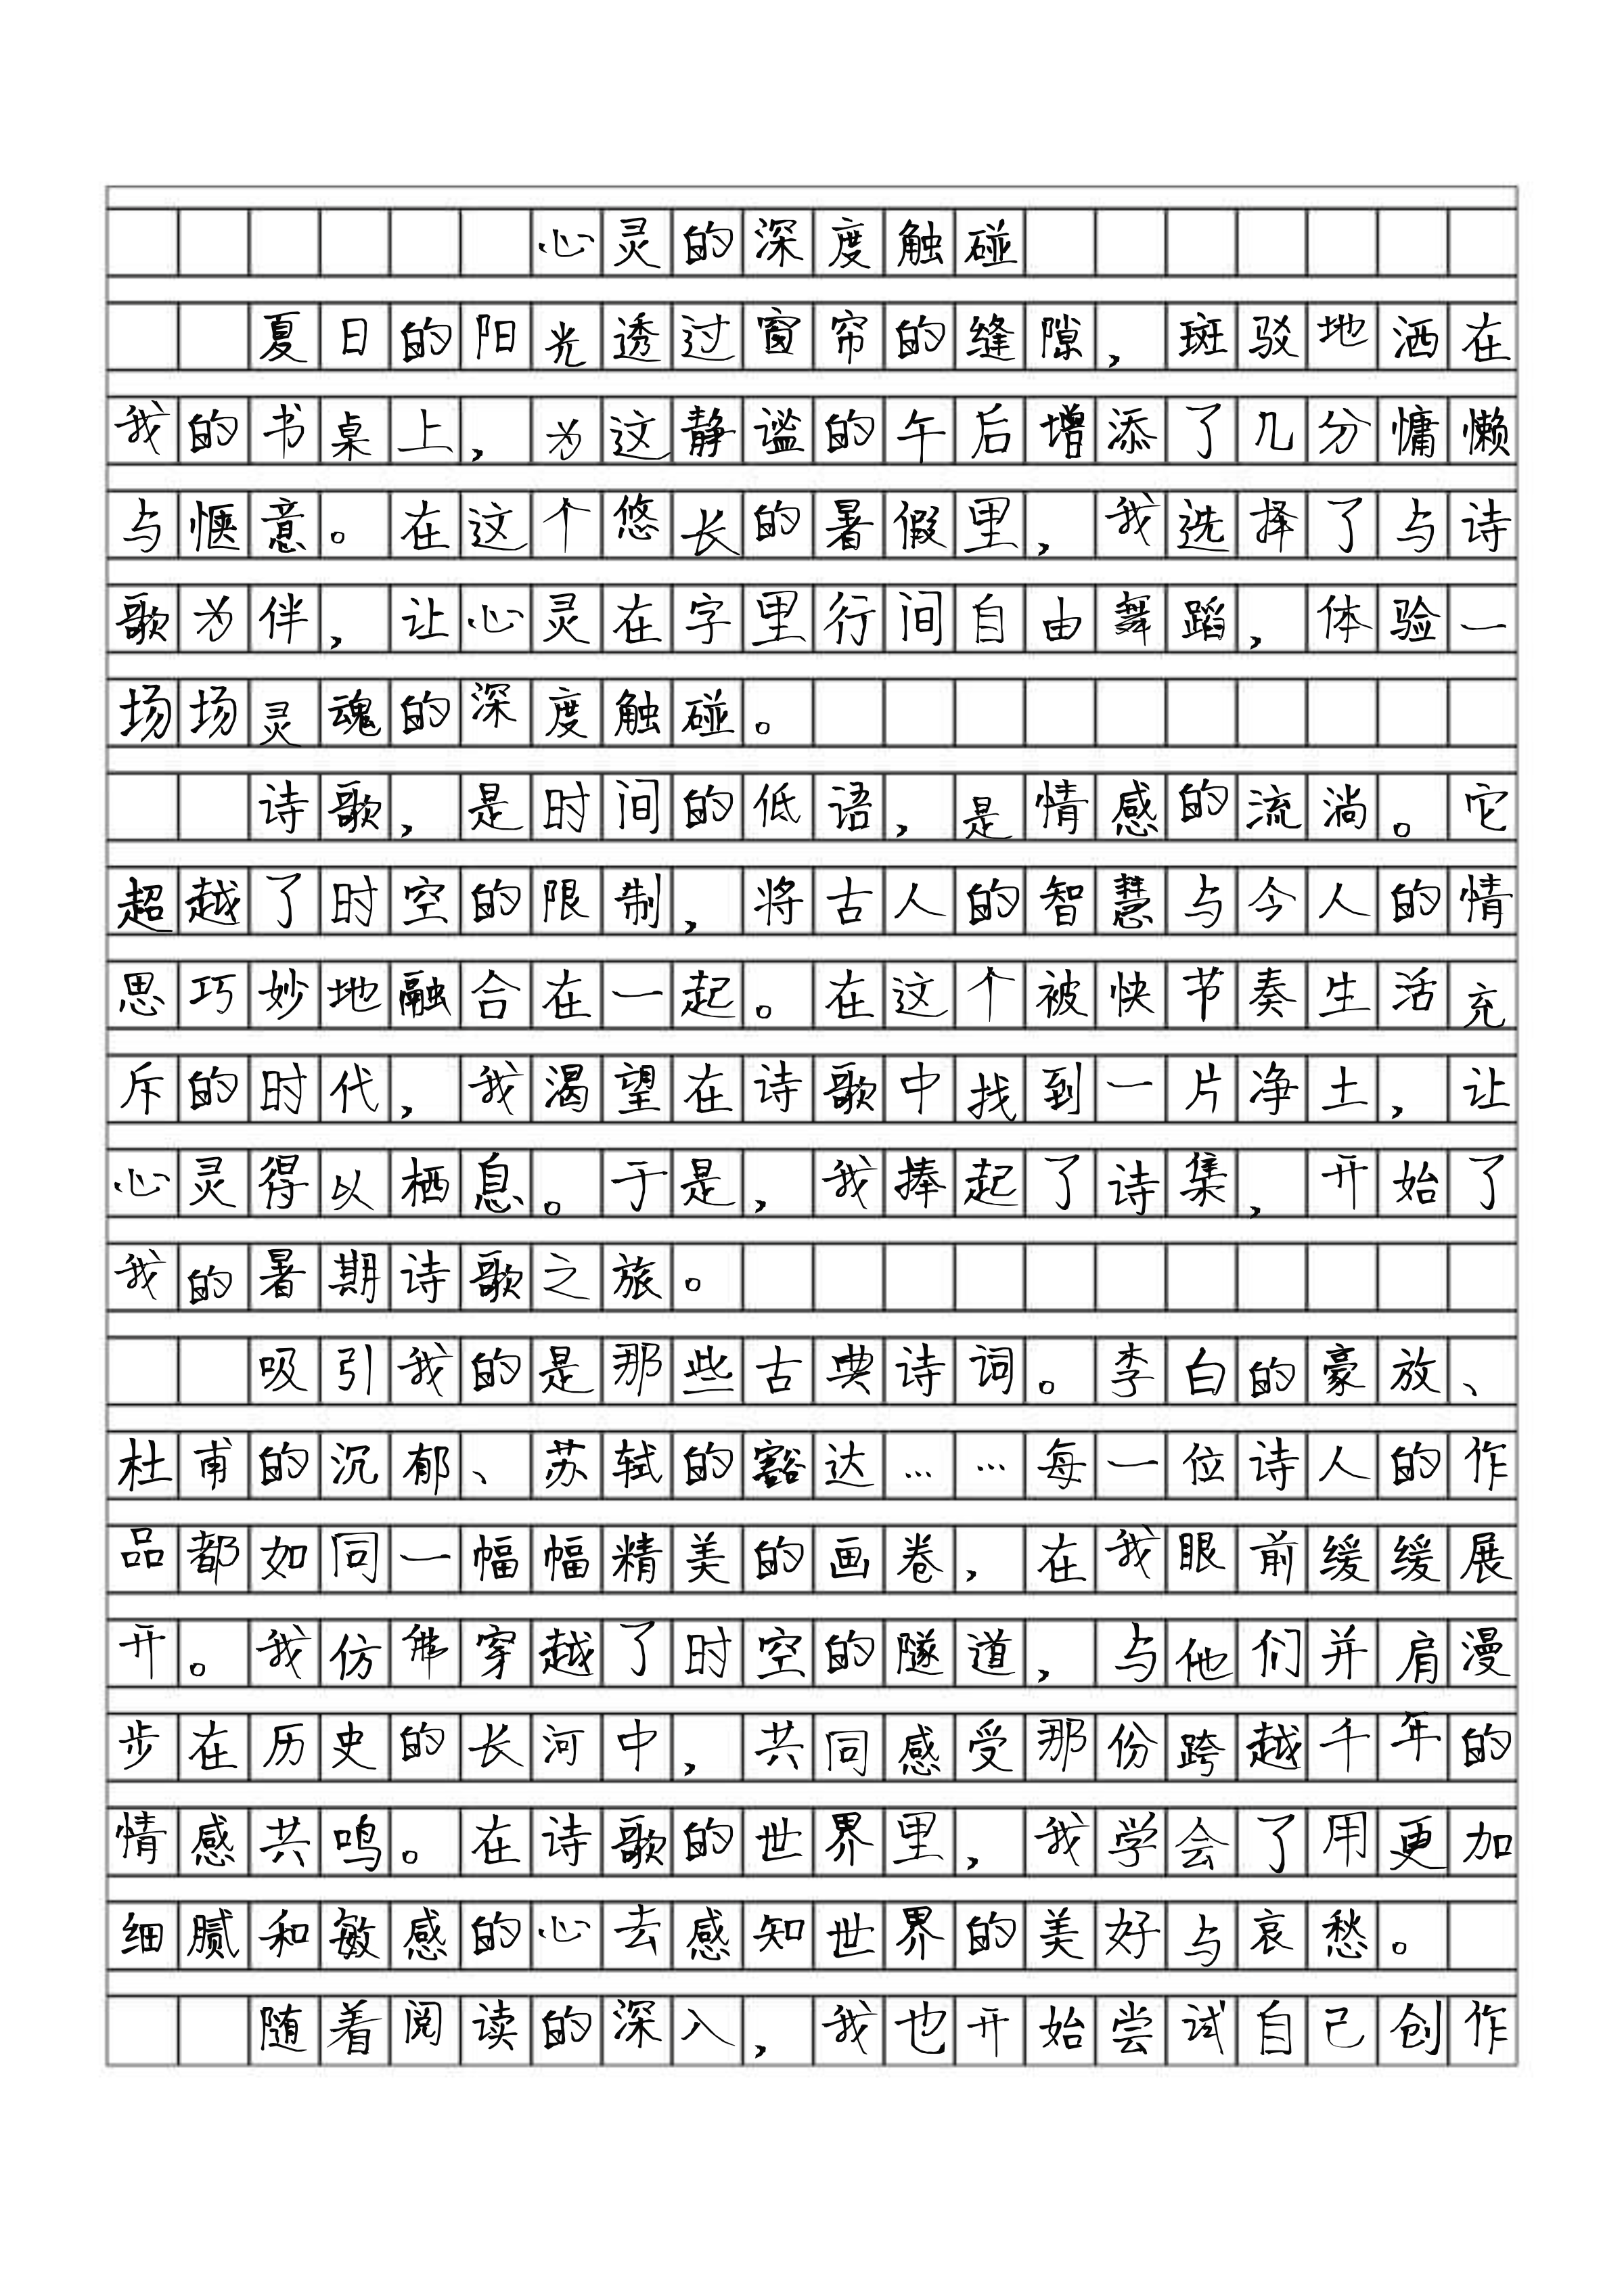 心灵的深度触碰
夏日的阳光透过窗帘的缝隙，斑驳地洒在
我的书桌上，为这静谧的午后增添了几分慵懒
与惬意。在这个悠长的暑假里，我选择了与诗
歌为伴，让心灵在字里行间自由舞蹈，体验一
场场灵魂的深度触碰。
诗歌，是时间的低语，是情感的流淌。它
超越了时空的限制，将古人的智慧与今人的情
思巧妙地融合在一起。在这个被快节奏生活充
斥的时代，我渴望在诗歌中找到一片净土，让
心灵得以栖息。于是，我捧起了诗集，开始了
我的暑期诗歌之旅。
吸引我的是那些古典诗词。李白的豪放、
杜甫的沉郁、苏轼的豁达……每一位诗人的作
品都如同一幅幅精美的画卷，在我眼前缓缓展
开。我仿佛穿越了时空的隧道，与他们并肩漫
步在历史的长河中，共同感受那份跨越千年的
情感共鸣。在诗歌的世界里，我学会了用更加
细腻和敏感的心去感知世界的美好与哀愁。
随着阅读的深入，我也开始尝试自己创作